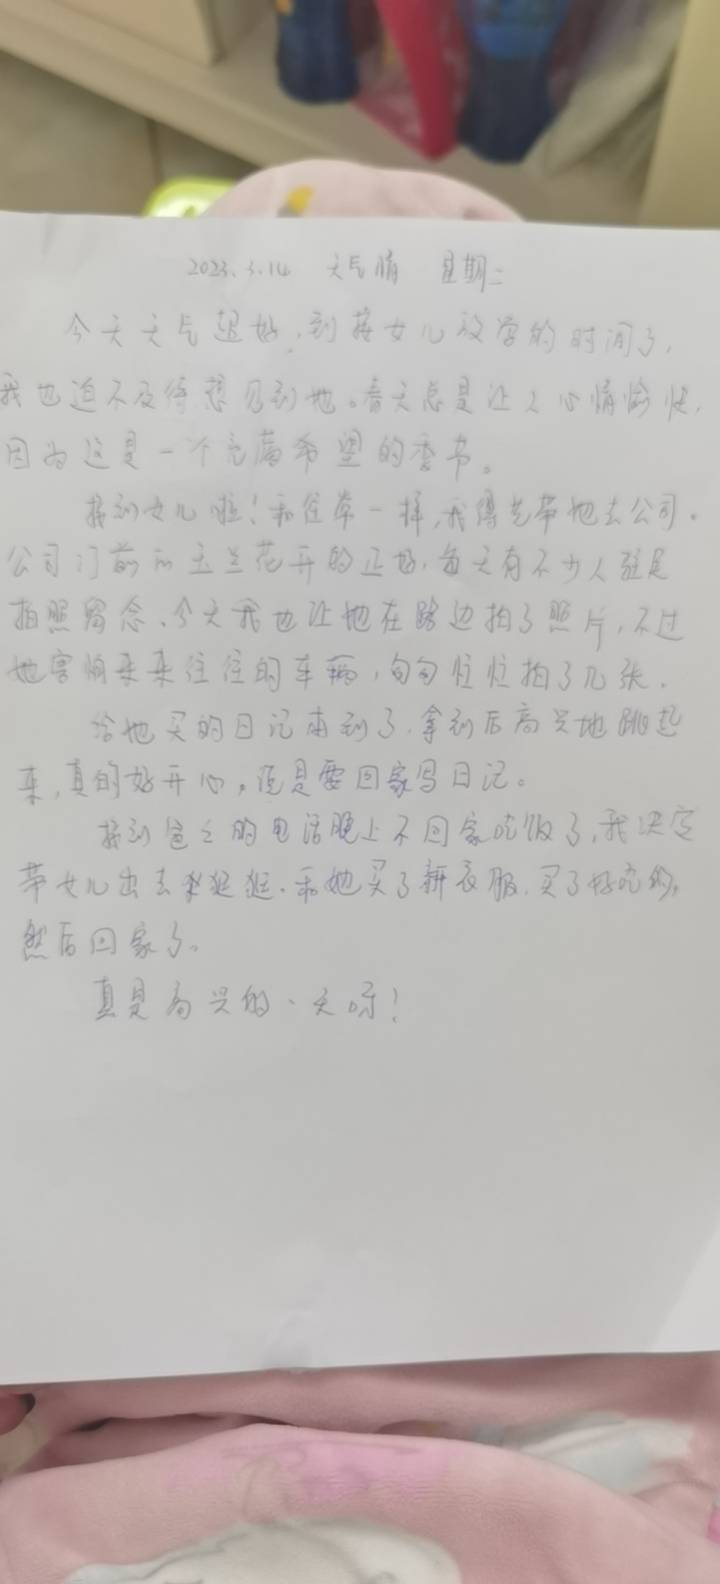 2023.3.14 天气晴 星期二
今天天气超好,到接女儿放学的时间了,
我也迫不及待想见到她。春天总是让人心情愉快,
因为这是一个充满希望的季节。
接到女儿啦!和往常一样,我得先带她去公司。
公司门前的玉兰花开的正好,每天有不少人驻足
拍照留念、今天我也让她在路边拍了照片,不过
她害怕来来往往的车辆,匆匆忙忙拍了几张.
给她买的日记本到了,拿到后高兴地跳起
来,真的好开心,说是要回家写日记。
接到爸爸的电话晚上不回家吃饭了,我决定
带女儿出去逛逛.和她买了新衣服,买了好吃的,
然后回家了。
真是高兴的一天呀!